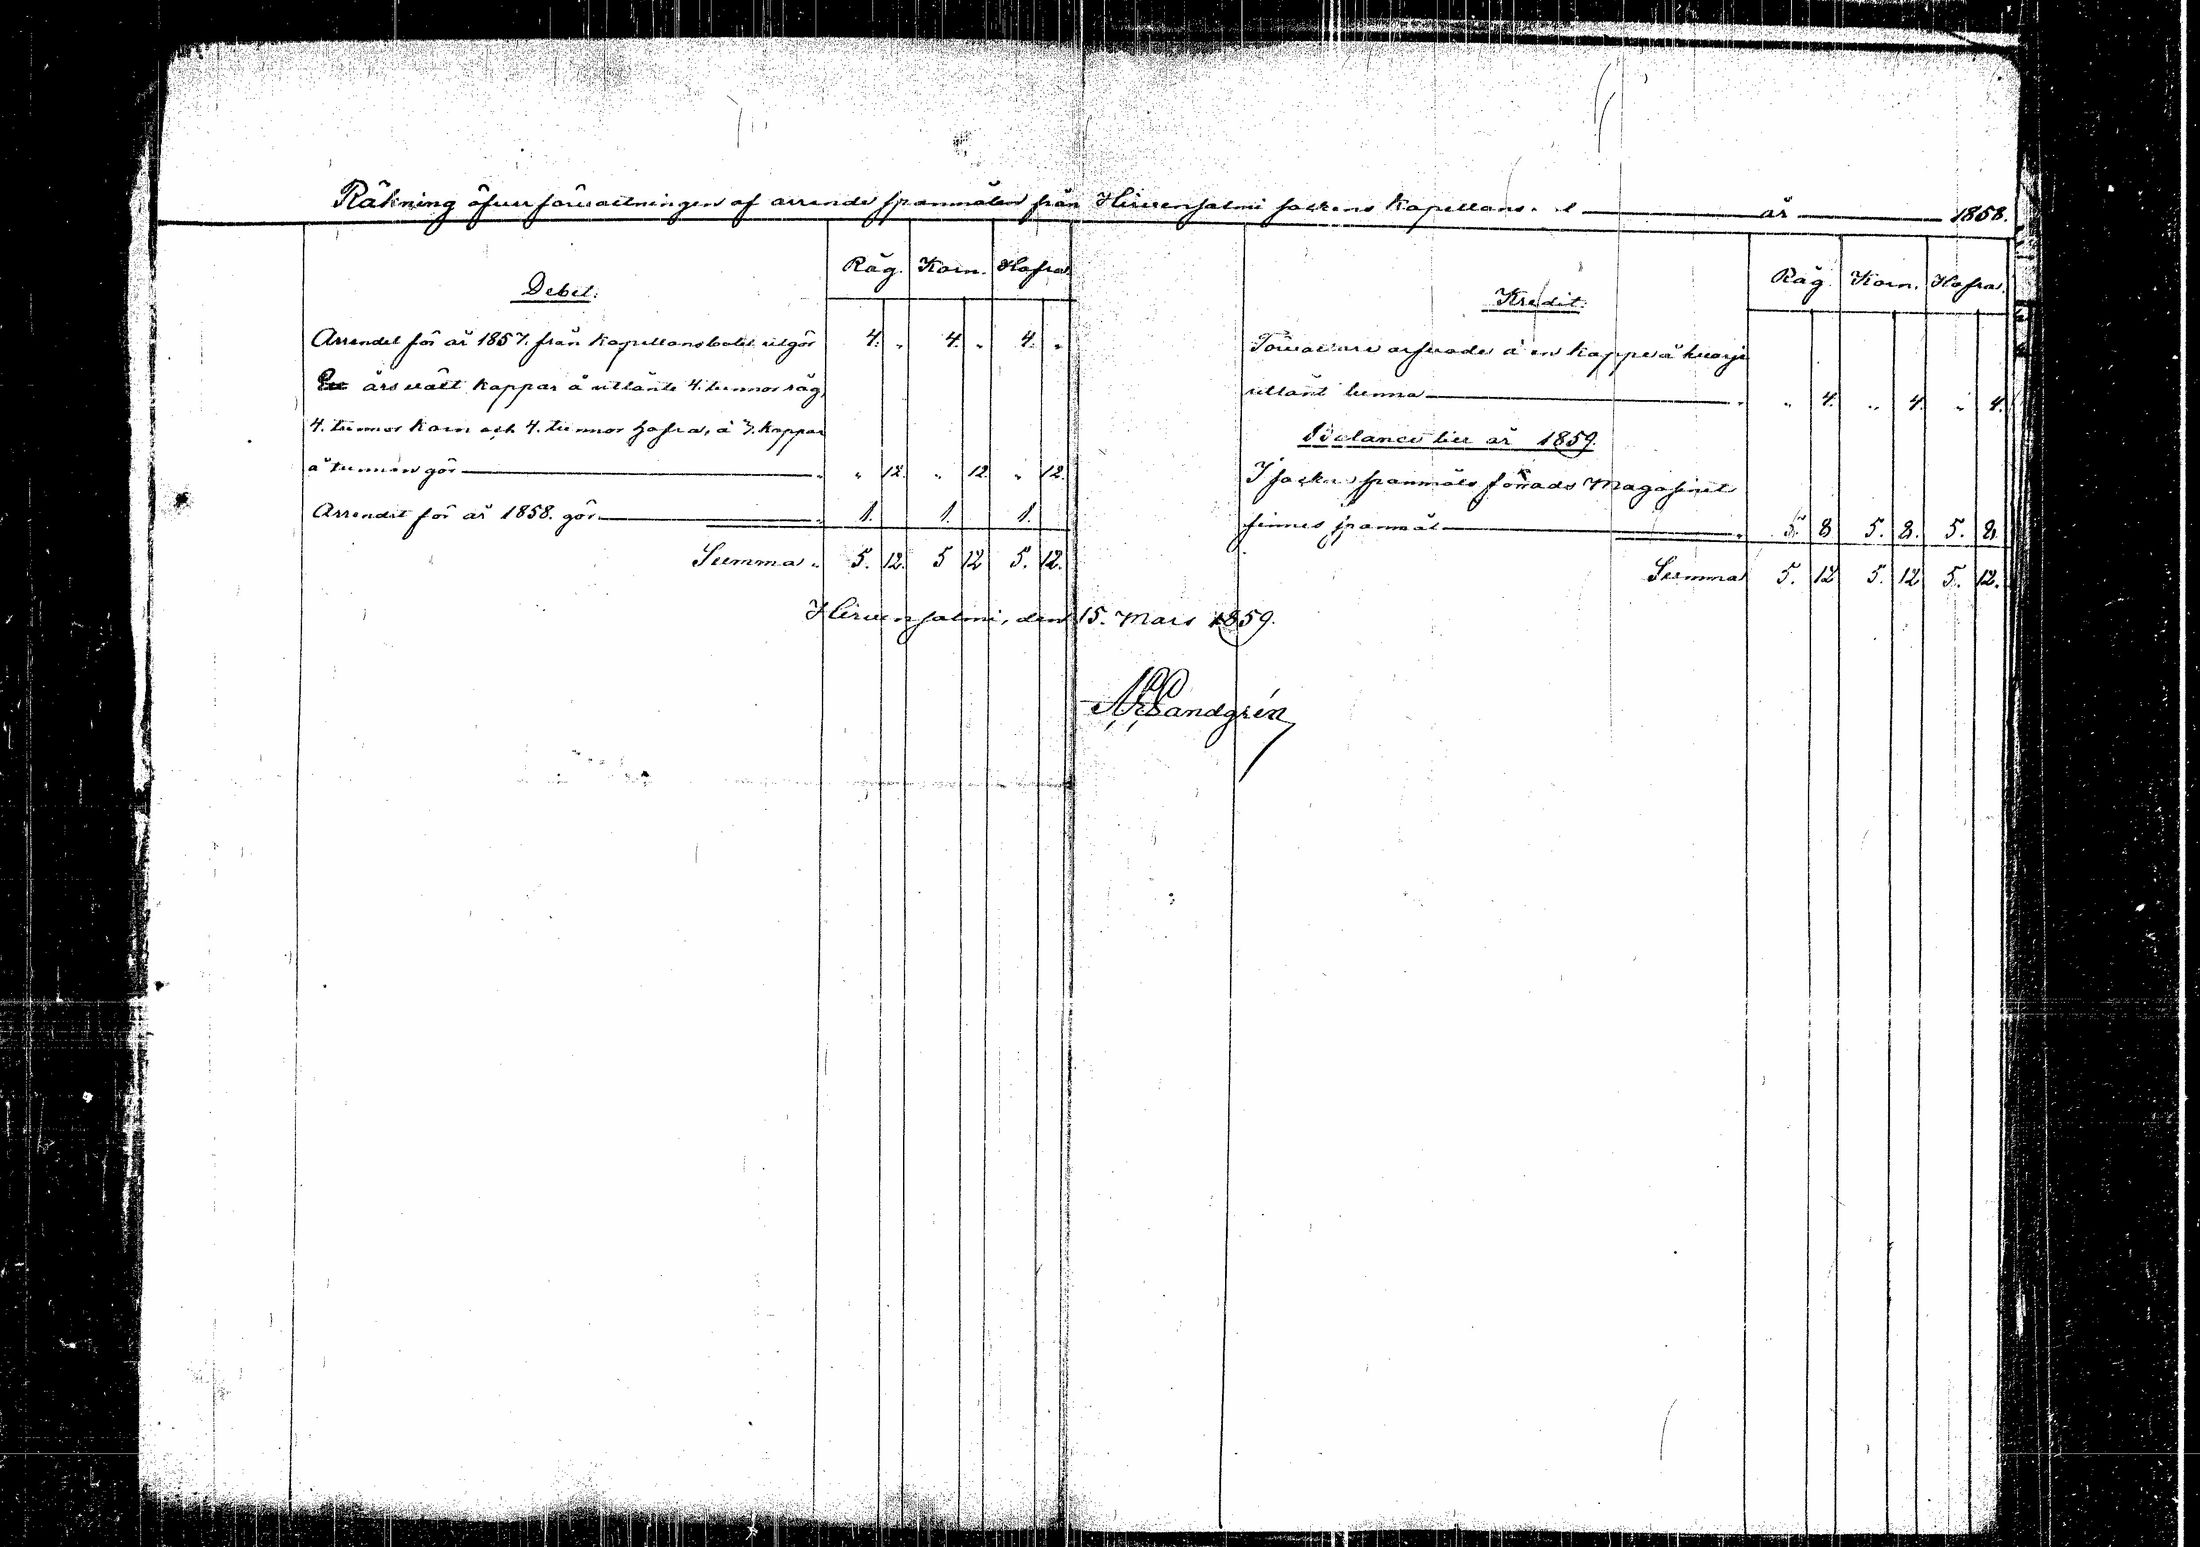 Räkning öfver förvaltningen af arrende spanmålen från Hirvensalmi sockens Kapellans år 1858.
Debet.
Råg. Korn. Hafra.
Arrendet för år 1857. från Kapellansbolet utgör 4. " 4. " 4. "
Ett års växt kappar å utlånte 4. tunnor råg,
4. tunnor Korn och 4. tunnor hafra, à 3. kappar
å tunnan gör " 12. " 12 " 12.
Arrendet för år 1858. gör 1. 1. 1.
Summa 5. 12. 5 12 5. 12.
Kredit.
Råg. Korn. Hafra.
arfvode à en kappe å hvarje
utlånt tunna " 4. " 4. " 4.
Balance till år 1859.
I sockne spanmåls förråds Magasinet
finnes spanmål 5. 8 5. 8. 5. 8.
Summa 5. 12 5. 12 5. 12.
Hirvensalmi, den 15. Mars 1859.
Sandgrén